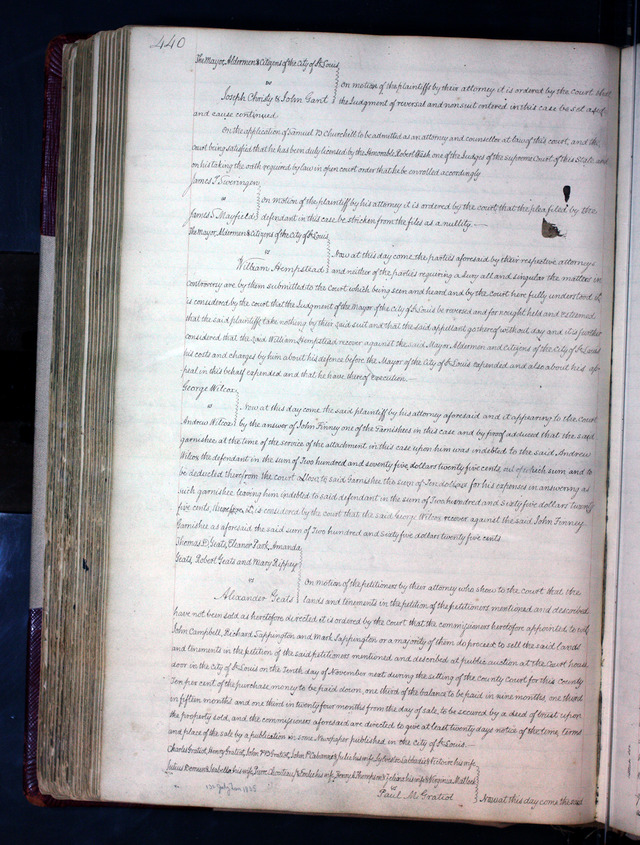 440
The Mayor, Aldermen & Citizens of the City of St Louis
vs
on motion of the plaintiffs by their attorney it is ordered by the Court that
Joseph Christy & John Gant the Judgment of reversal and nonsuit entered in this case be set aside
and cause continued.
On the application of Samuel B Churchill to be admitted as an attorney and counsellor at law of this court, and the
court being satisfied that he has been duly licensed by the Honorable Robert Wash one of the Judges of the supreme Court of this State and
on his taking the oath required by law in open court order that he be enrolled accordingly
James T. Sweringen
vs
on motion of the plaintiff by his attorney it is ordered by the court that the plea filed by the
James S. Mayfield defendant in this case be stricken from the files as a nullity. —
The Mayor, Aldermen & Citizens of the City of St Louis
vs
Now at this day come the parties aforesaid by their respective attorneys
William Hempstead and neither of the parties requiring a jury all and singular the matters in
controversy are by them submitted to the Court which being seen and heard and by the Court here fully understood it
is considered by the court that the Judgment of the Mayor of the City of St Louis be reversed and for nought held and esteemed
that the said plaintiffs take nothing by their said suit and that the said appellant go hereof without day and it is further
considered that the said William Hempstead recover against the said Mayor Aldermen and Citizens of the City of St Louis
his costs and charges by him about his defence before the Mayor of the City of St Louis expended and also about his ap-
peal in this behalf expended and that he have thereof execution. —
George Wilcox
vs
Now at this day come the said plaintiff by his attorney aforesaid and it appearing to the Court
Andrew Wilcox by the answer of John Finney one of the Garnishees in this case and by proof adduced that the said
garnishee at the time of the service of the attachment in this case upon him was indebted to the said Andrew
Wilcox the defendant in the sum of Two hundred and seventy five dollars twenty five cents out of which sum and to
be deducted therefrom the court allows to said Garnishee the sum of Ten dollars for his expenses in answering as
such garnishee leaving him indebted to said defendant in the sum of Two hundred and Sixty five dollars twenty
five cents, therefore it is considered by the court that the said George Wilcox recover against the said John Finney
Garnishee as aforesaid the said sum of Two hundred and Sixty five dollars twenty five cents
Thomas P. Geats, Eleanor Park, Amanda
Geats, Robert Geats and Mary Rippey
vs
on motion of the petitioners by their attorney who show to the court that the
Alexander Geats lands and tenements in the petition of the petitioners mentioned and described
have not been sold as heretofore directed it is ordered by the court that the commissioners heretofore appointed to wit
John Campbell, Richard Sappington and Mark Sappington or a majority of them do proceed to sell the said lands
and tenements in the petition of the said petitioners mentioned and described at public auction at the Court house
door in the City of St Louis on the Tenth day of November next during the sitting of the County Court for this County
Ten per cent of the purchase money to be paid down, one third of the balance to be paid in nine months, one third
in fifteen months and one third in twenty four months from the day of sale, to be secured by a deed of trust upon
the property sold, and the commissioners aforesaid are directed to give at least twenty days notice of the time, terms
and place of the sale by a publication in some Newspaper published in the City of St Louis.
Charles Gratiot, Henry Gratiot, John P B Gratiot, John P. Cabanne & Julie his wife, Sylvestre Labbadie & Victoire his wife
Julius Demun & Isabella his wife, Pierre Chouteau & Emilie his wife, &
vs
Paul M Gratiot Now at this day come the said